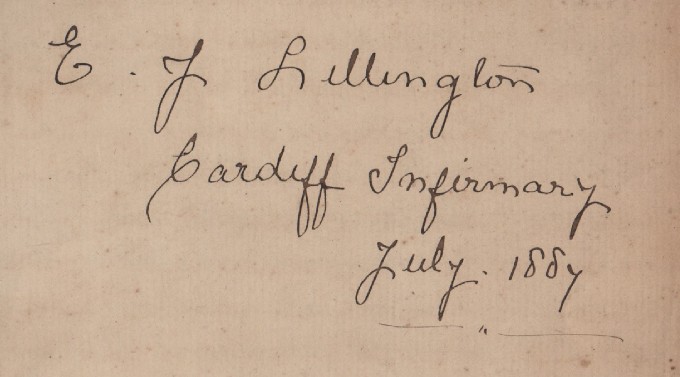 E. J Lillington
Cardiff Infirmary
July. 1887